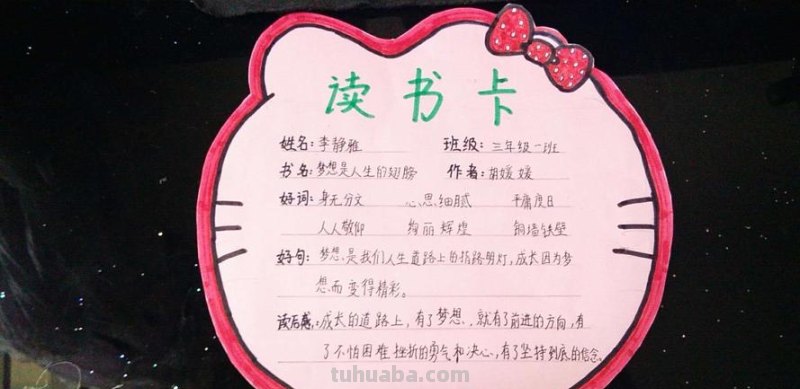 读书卡
姓名：李静雅 班级：三年级一班
书名：梦想是人生的翅膀 作者：胡媛媛
好词：身无分文 心思细腻 平庸度日
人人敬仰 绚丽辉煌 铜墙铁壁
好句：梦想是我们人生道路上的指路明灯，成长因为梦
想而变得精彩。
读后感：成长的道路上，有了梦想，就有了前进的方向，有
了不怕困难挫折的勇气和决心，有了坚持到底的信念。
tuhuaba.com